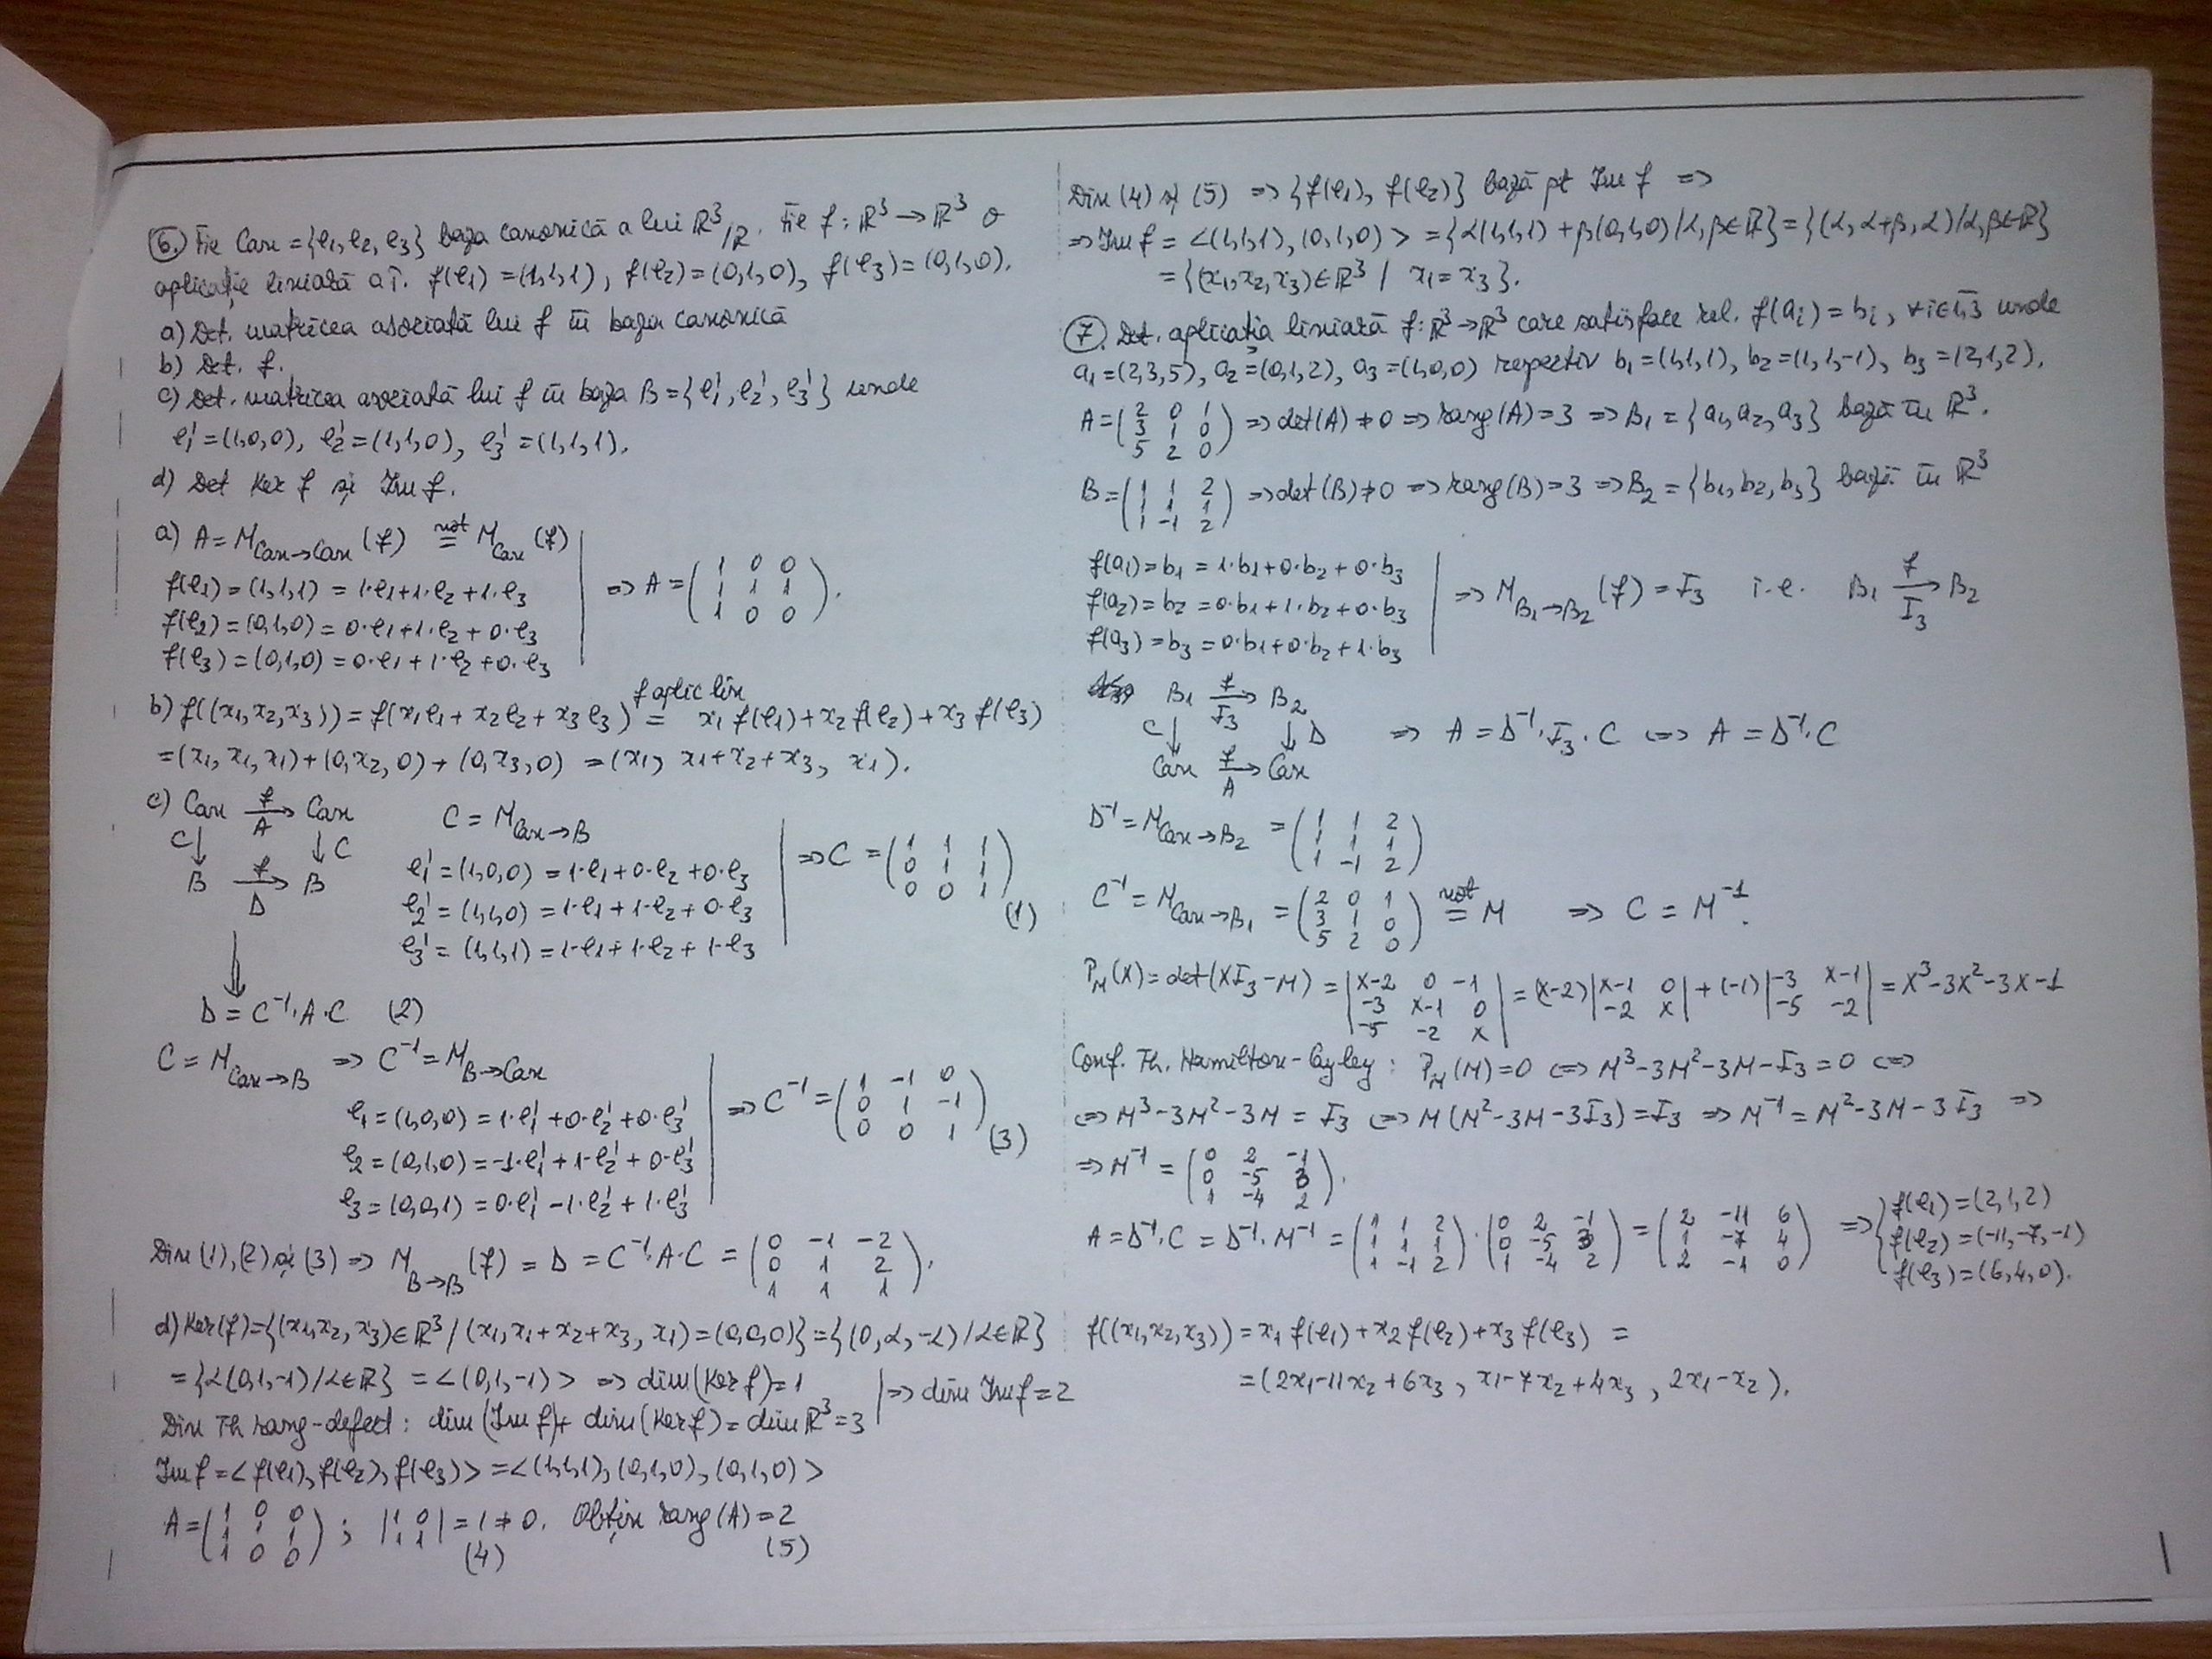 6. Fie Can = {e1, e2, e3} baza canonică a lui R³/R. Fie f: R³ → R³ o
aplicație liniară a.î. f(e1) = (1,1,1), f(e2) = (0,1,0), f(e3) = (0,1,0).
a) Det. matricea asociată lui f în baza canonică
b) Det. f.
c) Det. matricea asociată lui f în baza B = {e1', e2', e3'} unde
e1' = (1,0,0), e2' = (1,1,0), e3' = (1,1,1).
d) Det Ker f și Im f.
a) A = M_{Can→Can}(f) not= M_{Can}(f)
f(e1) = (1,1,1) = 1·e1 + 1·e2 + 1·e3
f(e2) = (0,1,0) = 0·e1 + 1·e2 + 0·e3
f(e3) = (0,1,0) = 0·e1 + 1·e2 + 0·e3
⇒ A = (1 0 0
1 1 1
1 0 0).
b) f((x1,x2,x3)) = f(x1e1 + x2e2 + x3e3) f aplic lin= x1 f(e1) + x2 f(e2) + x3 f(e3)
= (x1, x1, x1) + (0, x2, 0) + (0, x3, 0) = (x1, x1+x2+x3, x1).
c) Can f→ Can
A
C↓ ↓C
B f→ B
D
C = M_{Can→B}
e1' = (1,0,0) = 1·e1 + 0·e2 + 0·e3
e2' = (1,1,0) = 1·e1 + 1·e2 + 0·e3
e3' = (1,1,1) = 1·e1 + 1·e2 + 1·e3
⇒ C = (1 1 1
0 1 1
0 0 1)
(1)
⇓
D = C⁻¹·A·C (2)
C = M_{Can→B} ⇒ C⁻¹ = M_{B→Can}
e1 = (1,0,0) = 1·e1' + 0·e2' + 0·e3'
e2 = (0,1,0) = -1·e1' + 1·e2' + 0·e3'
e3 = (0,0,1) = 0·e1' - 1·e2' + 1·e3'
⇒ C⁻¹ = (1 -1 0
0 1 -1
0 0 1)
(3)
Din (1), (2) și (3) ⇒ M_{B→B}(f) = D = C⁻¹·A·C = (0 -1 -2
0 1 2
1 1 1).
d) Ker(f) = {(x1,x2,x3) ∈ R³ / (x1, x1+x2+x3, x1) = (0,0,0)} = {(0, α, -α) / α ∈ R}
= {α(0,1,-1) / α ∈ R} = <(0,1,-1)> ⇒ dim(Ker f) = 1
Din Th rang-defect: dim(Im f) + dim(Ker f) = dim R³ = 3
⇒ dim Im f = 2
Im f = <f(e1), f(e2), f(e3)> = <(1,1,1), (0,1,0), (0,1,0)>
A = (1 0 0
1 1 1
1 0 0) ; |1 0
1 1| = 1 ≠ 0. Obțin rang(A) = 2
(4) (5)
Din (4) și (5) ⇒ {f(e1), f(e2)} bază pt Im f ⇒
⇒ Im f = <(1,1,1), (0,1,0)> = {α(1,1,1) + β(0,1,0) / α, β ∈ R} = {(α, α+β, α) / α, β ∈ R}
= {(x1,x2,x3) ∈ R³ / x1 = x3}.
7. Det. aplicația liniară f: R³ → R³ care satisface rel. f(ai) = bi, ∀ i ∈ 1,3 unde
a1 = (2,3,5), a2 = (0,1,2), a3 = (1,0,0) respectiv b1 = (1,1,1), b2 = (1,1,-1), b3 = (2,1,2).
A = (2 0 1
3 1 0
5 2 0) ⇒ det(A) ≠ 0 ⇒ rang(A) = 3 ⇒ B1 = {a1, a2, a3} bază în R³.
B = (1 1 2
1 1 1
1 -1 2) ⇒ det(B) ≠ 0 ⇒ rang(B) = 3 ⇒ B2 = {b1, b2, b3} bază în R³
f(a1) = b1 = 1·b1 + 0·b2 + 0·b3
f(a2) = b2 = 0·b1 + 1·b2 + 0·b3
f(a3) = b3 = 0·b1 + 0·b2 + 1·b3
⇒ M_{B1→B2}(f) = I3 i.e. B1 f→ B2
I3
B1 f→ B2
I3
C↓ ↓D ⇒ A = D⁻¹·I3·C ⇔ A = D⁻¹·C
Can f→ Can
A
D⁻¹ = M_{Can→B2} = (1 1 2
1 1 1
1 -1 2)
C⁻¹ = M_{Can→B1} = (2 0 1
3 1 0
5 2 0) not= M ⇒ C = M⁻¹.
P_M(X) = det(XI3 - M) = |X-2 0 -1
-3 X-1 0
-5 -2 X| = (X-2)|X-1 0
-2 X| + (-1)|-3 X-1
-5 -2| = X³ - 3X² - 3X - 1
Conf. Th. Hamilton-Cayley: P_M(M) = 0 ⇔ M³ - 3M² - 3M - I3 = 0 ⇔
⇔ M³ - 3M² - 3M = I3 ⇔ M(M² - 3M - 3I3) = I3 ⇒ M⁻¹ = M² - 3M - 3I3 ⇒
⇒ M⁻¹ = (0 2 -1
0 -5 3
1 -4 2).
A = D⁻¹·C = D⁻¹·M⁻¹ = (1 1 2
1 1 1
1 -1 2) · (0 2 -1
0 -5 3
1 -4 2) = (2 -11 6
1 -7 4
2 -1 0) ⇒ { f(e1) = (2,1,2)
f(e2) = (-11,-7,-1)
f(e3) = (6,4,0).
f((x1,x2,x3)) = x1 f(e1) + x2 f(e2) + x3 f(e3) =
= (2x1 - 11x2 + 6x3, x1 - 7x2 + 4x3, 2x1 - x2).